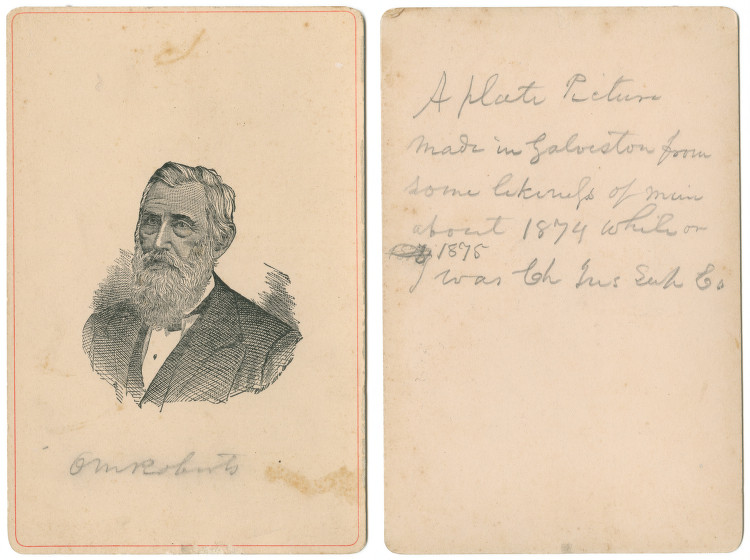 OMRoberts
A plate Picture
made in Galveston from
some likeness of mine
about 1874 while or
1875
I was Ch Jus Sup Co